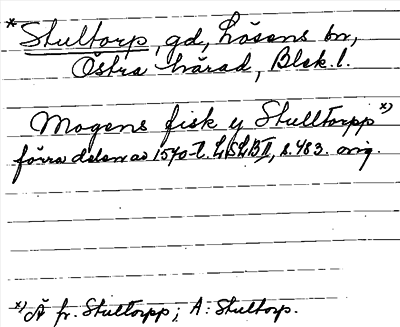 * Stultorp, gd, Lösens sn,
Östra härad, Blek. l.
Mogens fisk y Stulltorpp x)
förra delen av 1540-t. LSLB II, s. 483. orig.
x) Ä fr. Stultorpp; A: Stultorp.